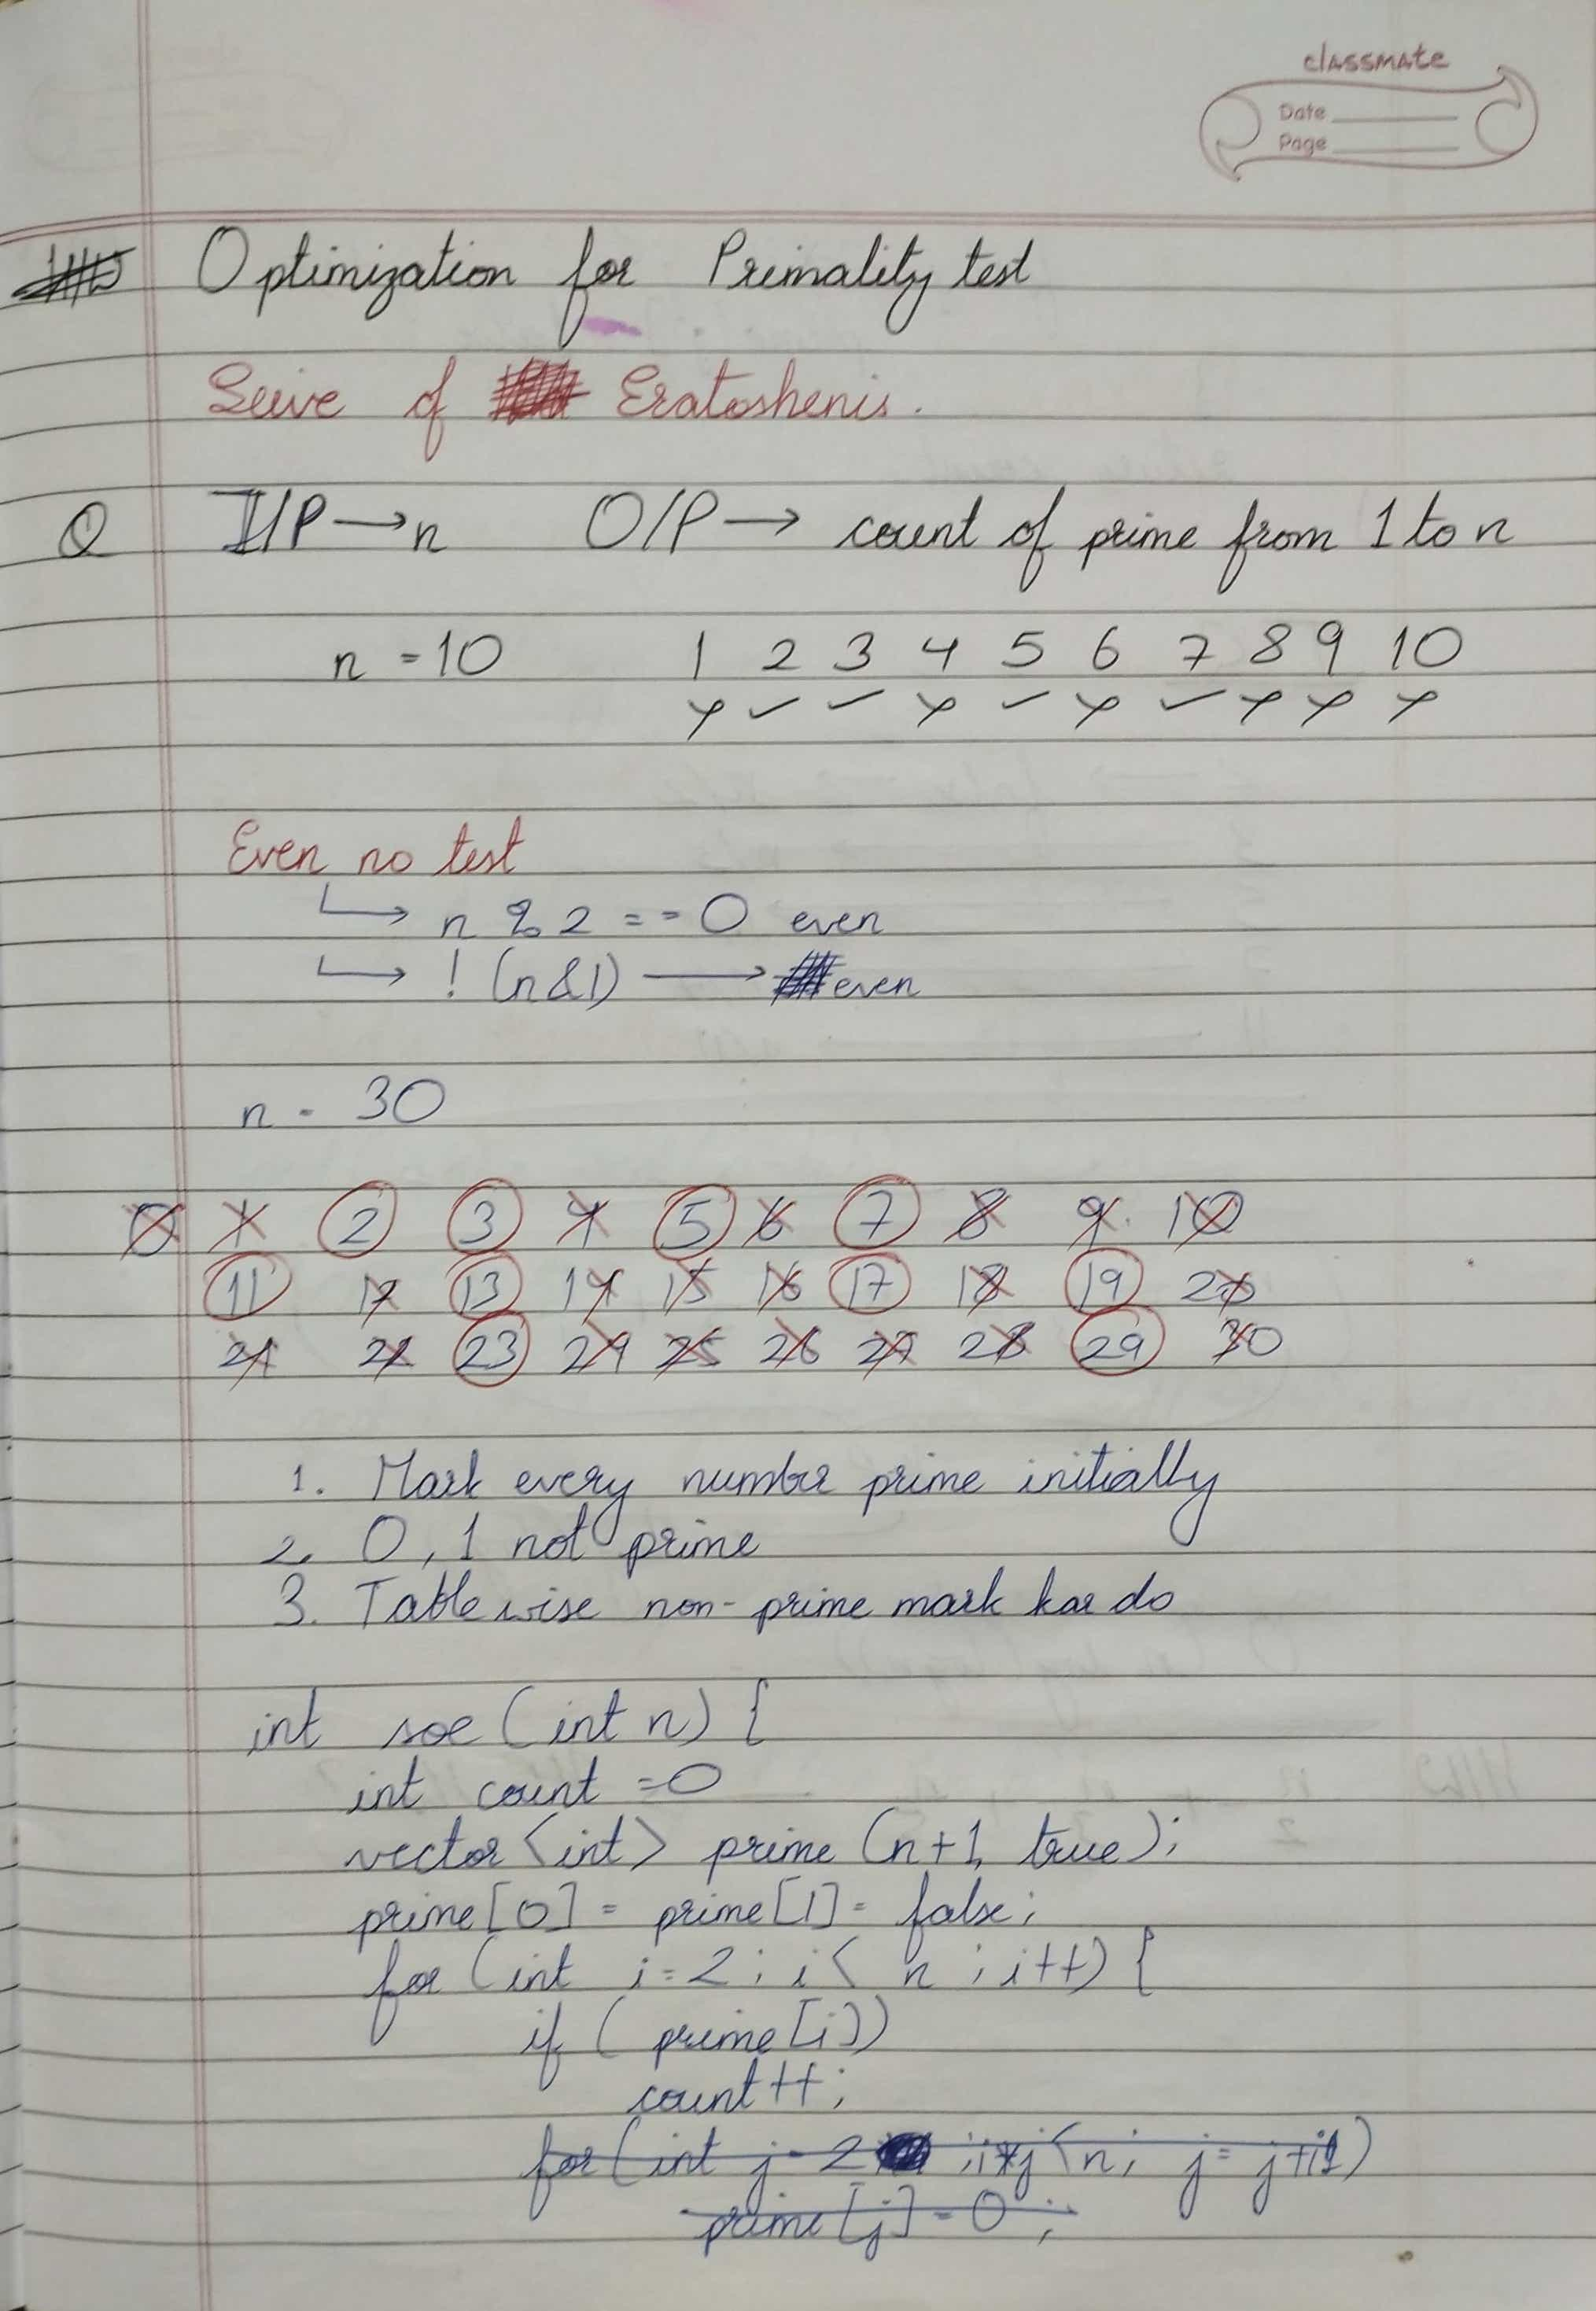 classmate
Date
Page
Optimization for Primality test
Seive of Eratoshenis.
Q I/P → n O/P → count of prime from 1 to n
n = 10 1 2 3 4 5 6 7 8 9 10
x ✓ ✓ x ✓ x ✓ x x x
Even no test
↳ n % 2 == 0 even
↳ ! (n&1) → even
n = 30
0 1 2 3 4 5 6 7 8 9 10
11 12 13 14 15 16 17 18 19 20
21 22 23 24 25 26 27 28 29 30
1. Mark every number prime initially
2. 0, 1 not prime
3. Table wise non-prime mark kar do
int soe (int n) {
int count =0
vector <int> prime (n+1, true);
prime[0] = prime[1] = false;
for (int i=2; i< n ; i++) {
if ( prime[i])
count++;
for (int j = 2 ; i*j <n; j= j+1)
prime[j] = 0 ;